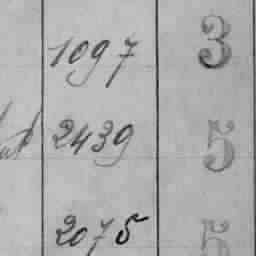 1097 3
2439 5
2075 5